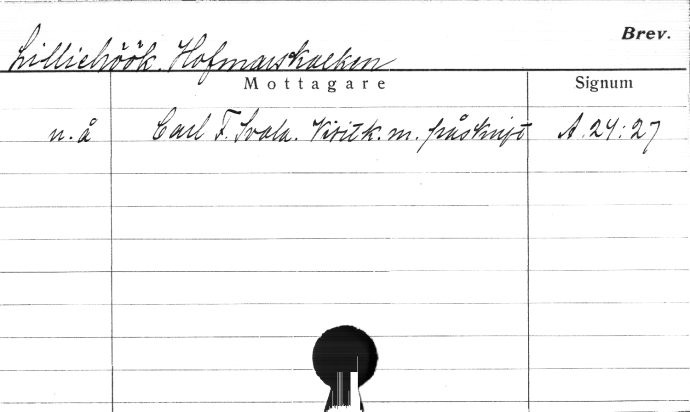 Brev.
Lilliehöök. Hofmarskalken
Mottagare Signum
n. å Carl F. Svala. Visitk. m. påskrift A. 24:27